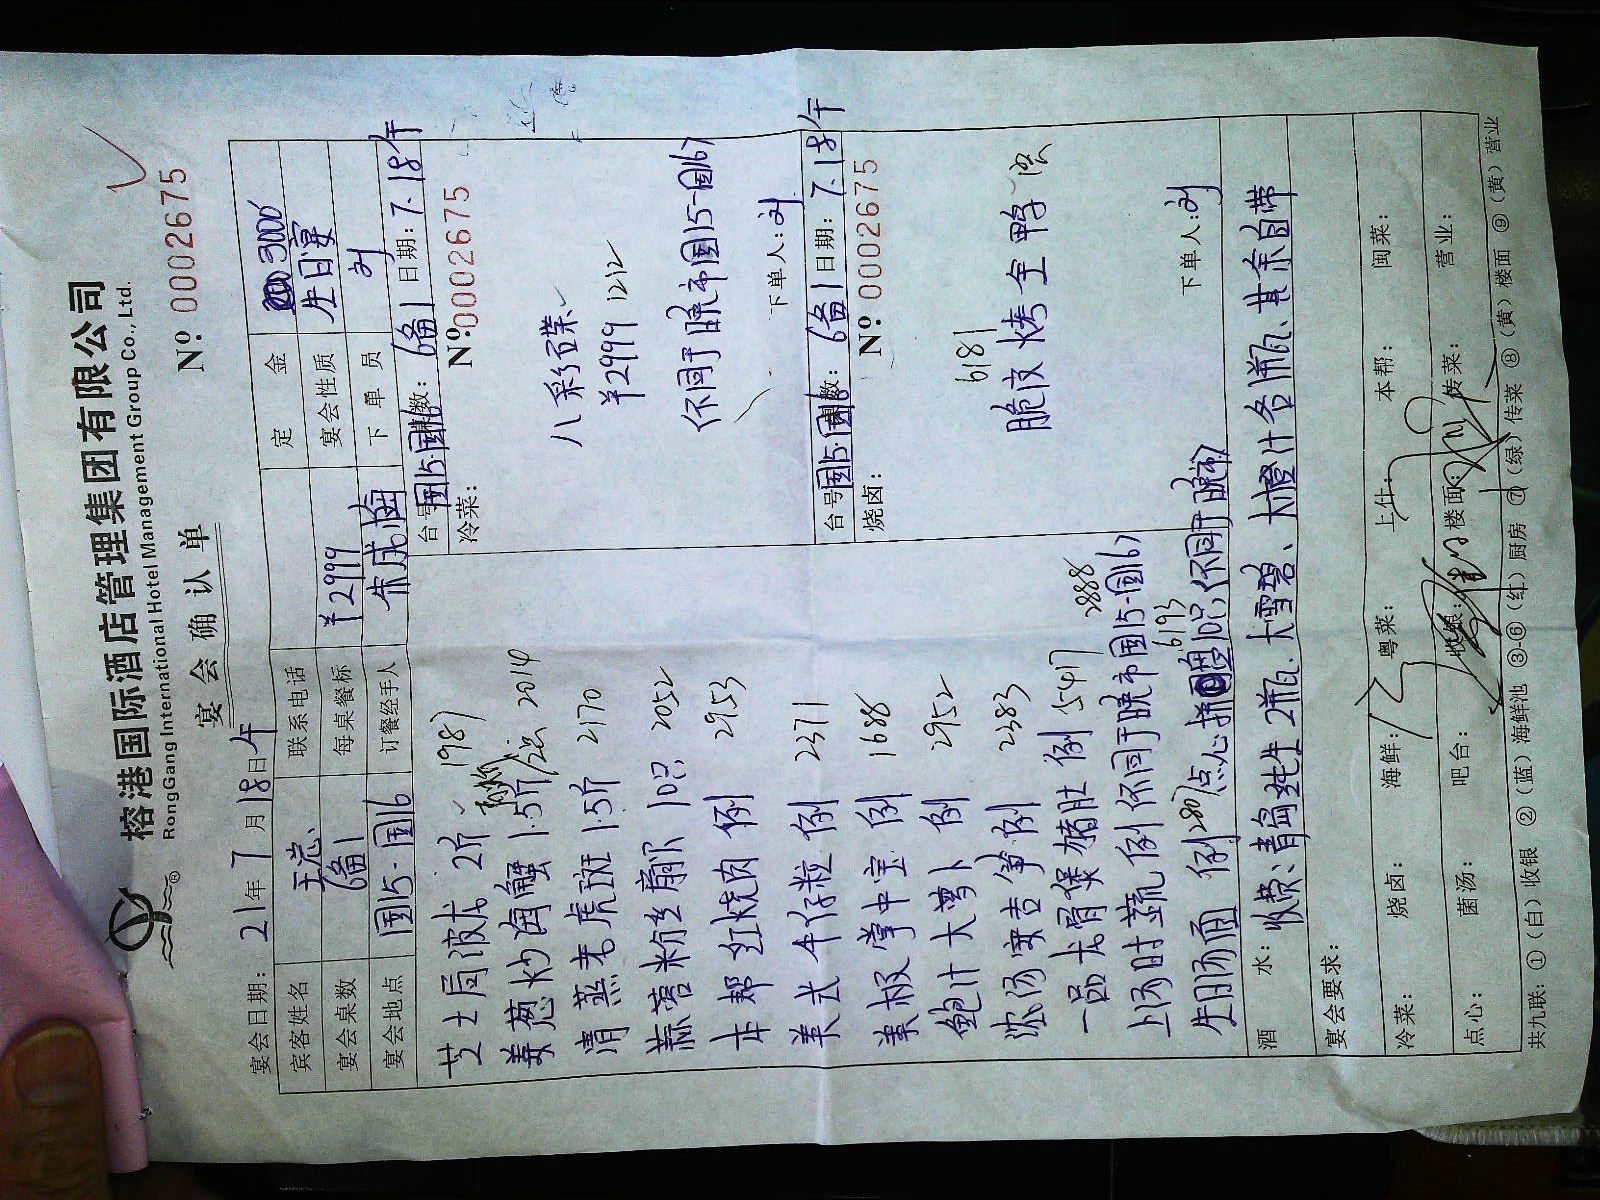 榕港国际酒店管理集团有限公司
RongGang International Hotel Management Group Co., Ltd.
宴会确认单
Nº 0002675
宴会日期: 21年7月18日午
宾客姓名 王总 联系电话 定金 3000
宴会桌数 6备1 每桌餐标 ¥2999 宴会性质 生日宴
宴会地点 国15-国16 订餐经手人 朱成海 下单员 刘
芝士局波龙 2斤 1987
姜葱炒海蟹 1.5斤/2只 2014
清蒸老虎斑 1.5斤 2170
蒜蓉粉丝扇贝 10只 2052
本帮红烧肉 例 2953
美式牛仔粒 例 2371
美极掌中宝 例 1688
鲍汁大萝卜 例 2952
浓汤安吉笋 例 2383
一品龙骨煲猪肚 例 5417
上汤时蔬 例(不同于晚市国15-国16) 2888
生日汤面 例 2807 点心拼盘 6193 (不同于晚市)
台号: 国15-国16 桌数: 6备1 日期: 7.18午
冷菜: Nº: 0002675
八彩碟
¥2999 1212
(不同于晚市国15-国16)
下单人: 刘
台号 国15-国16 桌数: 6备1 日期: 7.18午
烧卤: Nº 0002675
6181
脆皮烤全鸭
下单人: 刘
酒水: 收费: 青岛纯生2瓶、大雪碧、大橙汁各1瓶、其余自带
宴会要求:
冷菜: 烧卤: 海鲜: 粤菜: 上什: 本帮: 闽菜:
点心: 菌汤: 吧台: 收银: 楼面: 传菜: 营业:
共九联: ①(白)收银 ②(蓝)海鲜池 ③-⑥(红)厨房 ⑦(绿)传菜 ⑧(黄)楼面 ⑨(黄)营业